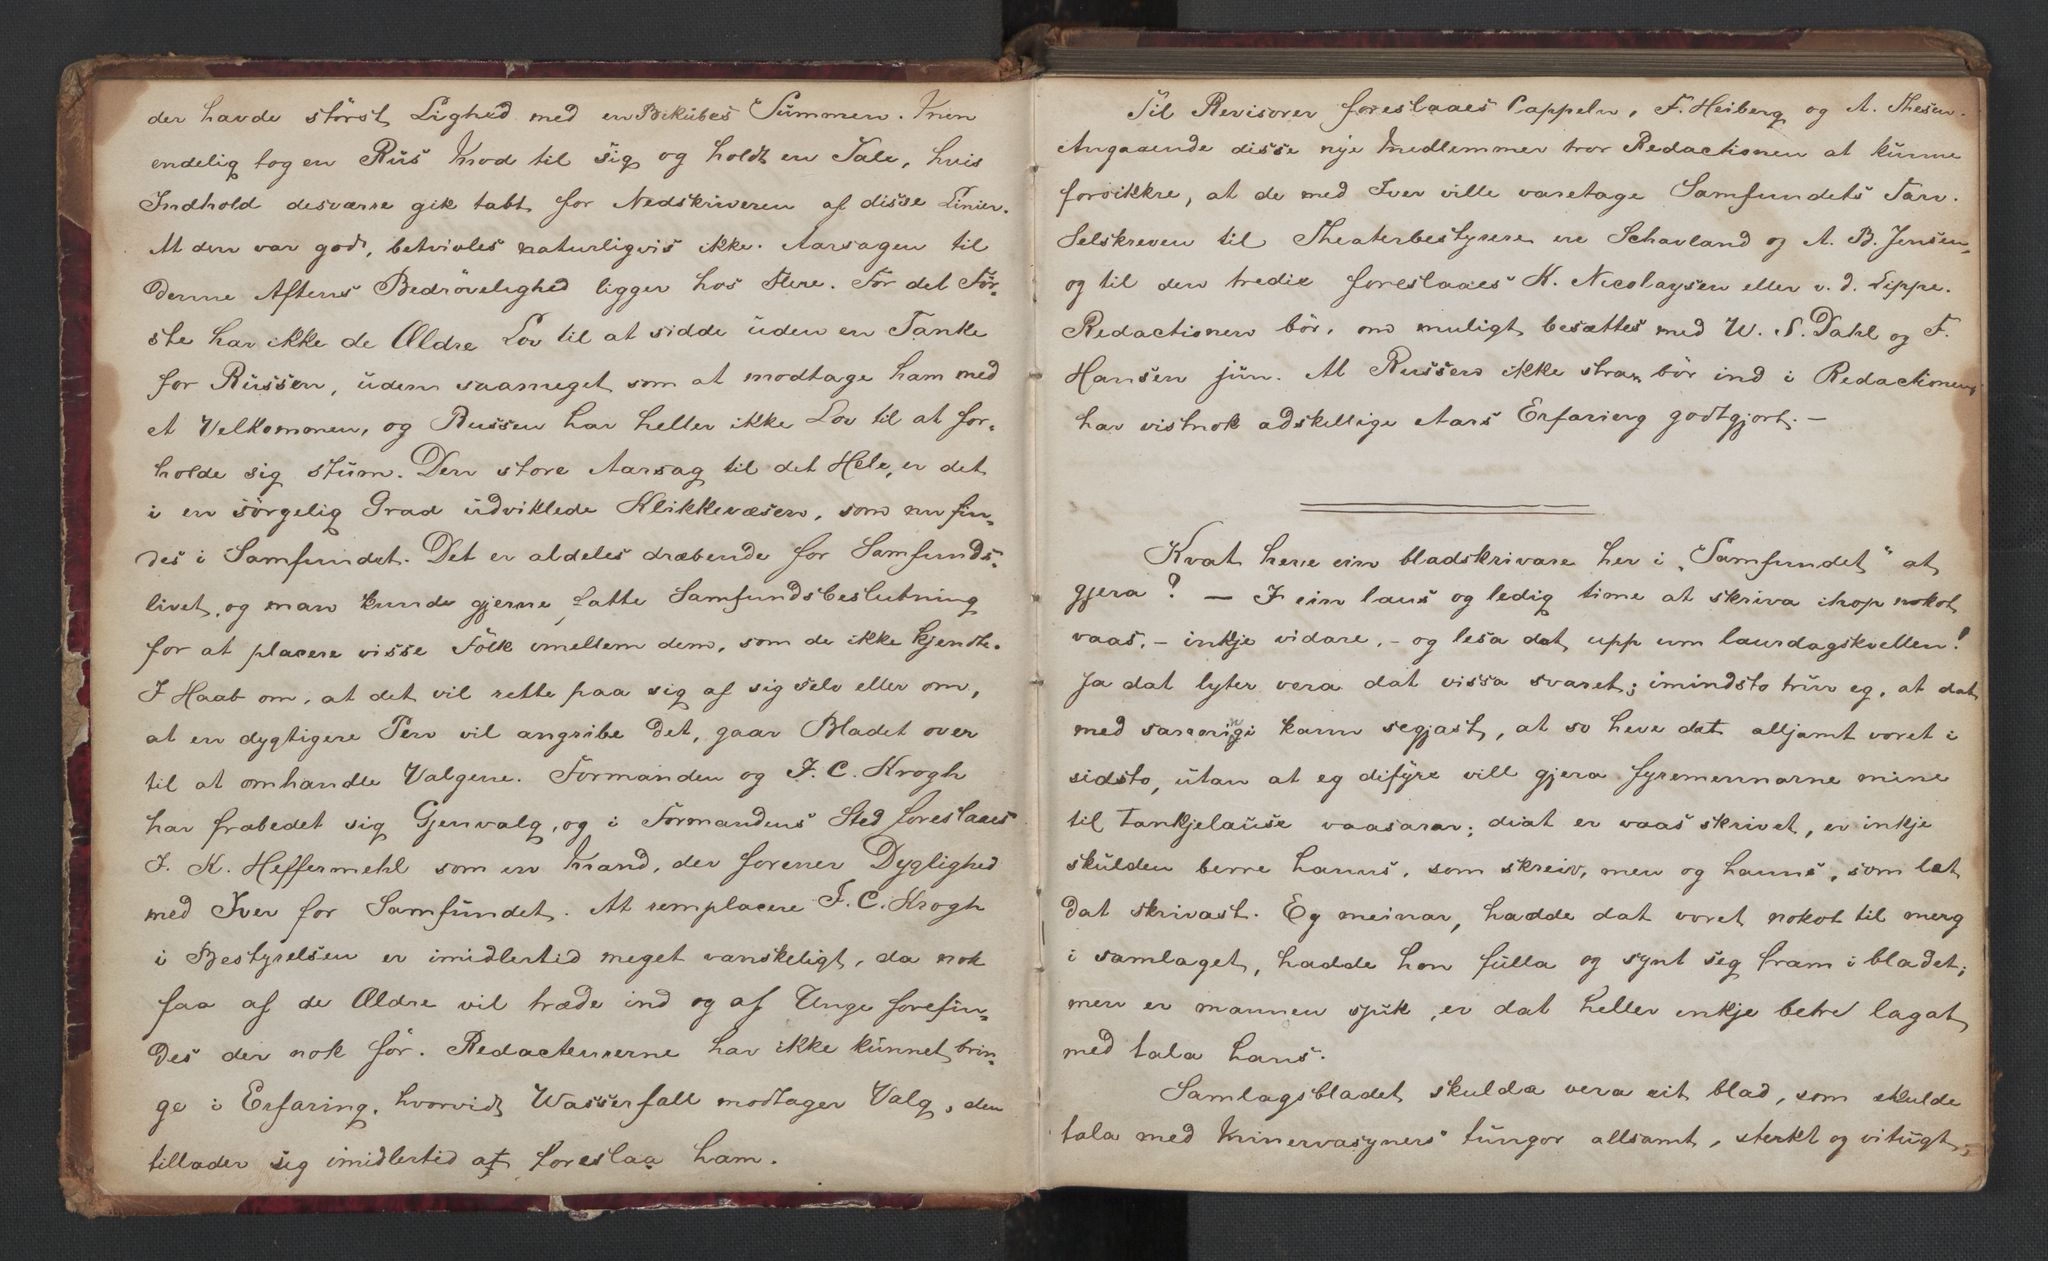 der havde störst Lighed med en Bikubes Summen. Men
endelig tog en Rus Mod til sig og holdt en Tale, hvis
Indhold desværre gik tabt for Nedskriveren af disse Linier.
At den var god, betvivles naturligvis ikke. Aarsagen til
denne Aftens Bedrövelighed ligger hos Flere. For det För-
ste har ikke de Ældre Lov til at sidde uden en Tanke
for Russen, uden saameget som at modtage ham med
et Velkommen, og Russen har heller ikke Lov til at for-
holde sig stum. Den store Aarsag til det Hele, er det
i en sörgelig Grad udviklede Klikkevæsen, som nu fin-
des i Samfundet. Det er aldeles dræbende for Samfunds-
livet, og man kunde gjerne fatte Samfundsbeslutning
for at placere visse Folk imellem dem, som de ikke kjendte.
I Haab om, at det vil rette paa sig af sig selv eller om,
at en dygtigere Pen vil angribe det, gaar Bladet over
til at omhandle Valgene. Formanden og F. C. Krogh
har frabedet sig Gjenvalg, og i Formandens Sted foreslaaes
J. K. Heffermehl som en Mand, der forener Dyglighed
med Iver for Samfundet. At remplacere F. C. Krogh
i Bestyrelsen er imidlertid meget vanskeligt, da nok
faa af de Ældre vil træde ind og af Unge forefin-
des der nok för. Redacteurerne har ikke kunnet brin-
ge i Erfaring, hvorvidt Wasserfall modtager Valg, den
tillader sig imidlertid at foreslaa ham.
Til Revisorer foreslaaes Cappeln, F. Heiberg og A. Thesen.
Angaaende disse nye Medlemmer tror Redactionen at kunne
forsikkre, at de med Iver ville varetage Samfundets Tarv.
Selskreven til Theaterbestyrere ere Schavland og A. B. Jensen,
og til den tredie foreslaaes K. Nicolaysen eller v. d. Lippe.
Redactionen bör, om muligt besættes med W. S. Dahl og F.
Hansen jun. At Russen ikke strax bör ind i Redactionen,
har vistnok adskellige Aars Erfaring godtgjort. –
Kvat heve ein bladskrivare her i „Samfundet“ at
gjera? – I ein laus og ledig time at skriva ihop nokot
vaas, – inkje vidare, – og lesa dat upp um laurdagskvelden!
Ja dat lyter vera dat vissa svaret; imindsto trur eg, at dat
med sanning kann segjast, at so heve dat alljamt voret i
sidsto, utan at eg difyre vill gjera fyremennarne mine
til tankjelause vaasarar; diat er vaas skrivet, er inkje
skulden berre hanns, som skreiv, men og hanns, som let
dat skrivast. Eg meinar, hadde dat voret nokot til merg
i samlaget, hadde hon fulla og synt seg fram i bladet;
men er mannen sjuk, er dat heller inkje betre lagat
med tala hans.
Samlagsbladet skulda vera eit blad, som skulde
tala med Minervasyners tungor allsamt, sterkt og vitugt,